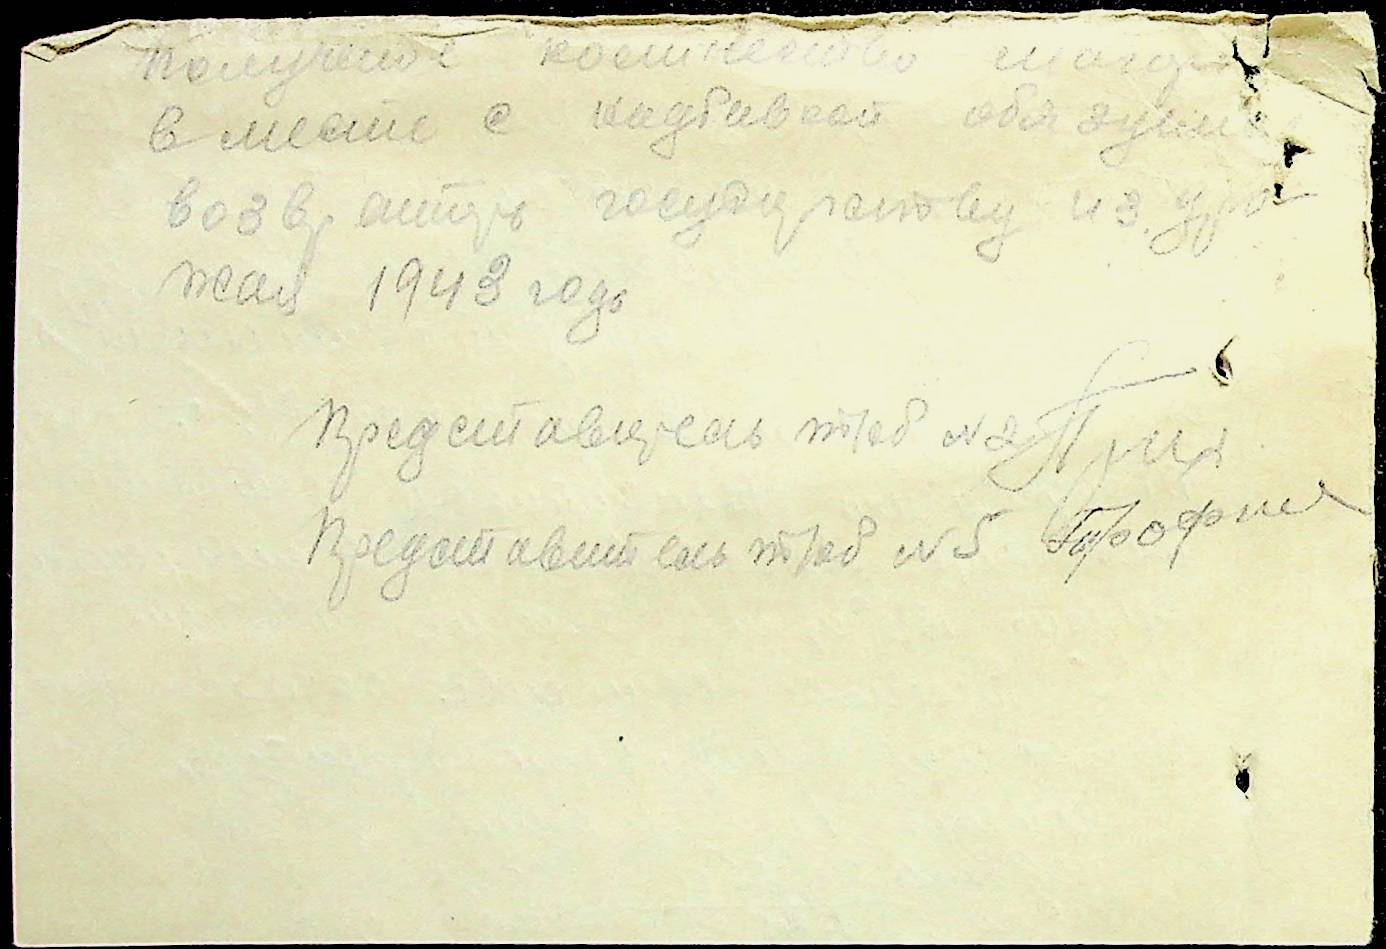 Полученое количество
вместе с надбавкой обязуемся
возвратить государству из уро
жая 1943 годь
Представитель тов №2
Представитель тов №5 Трофим